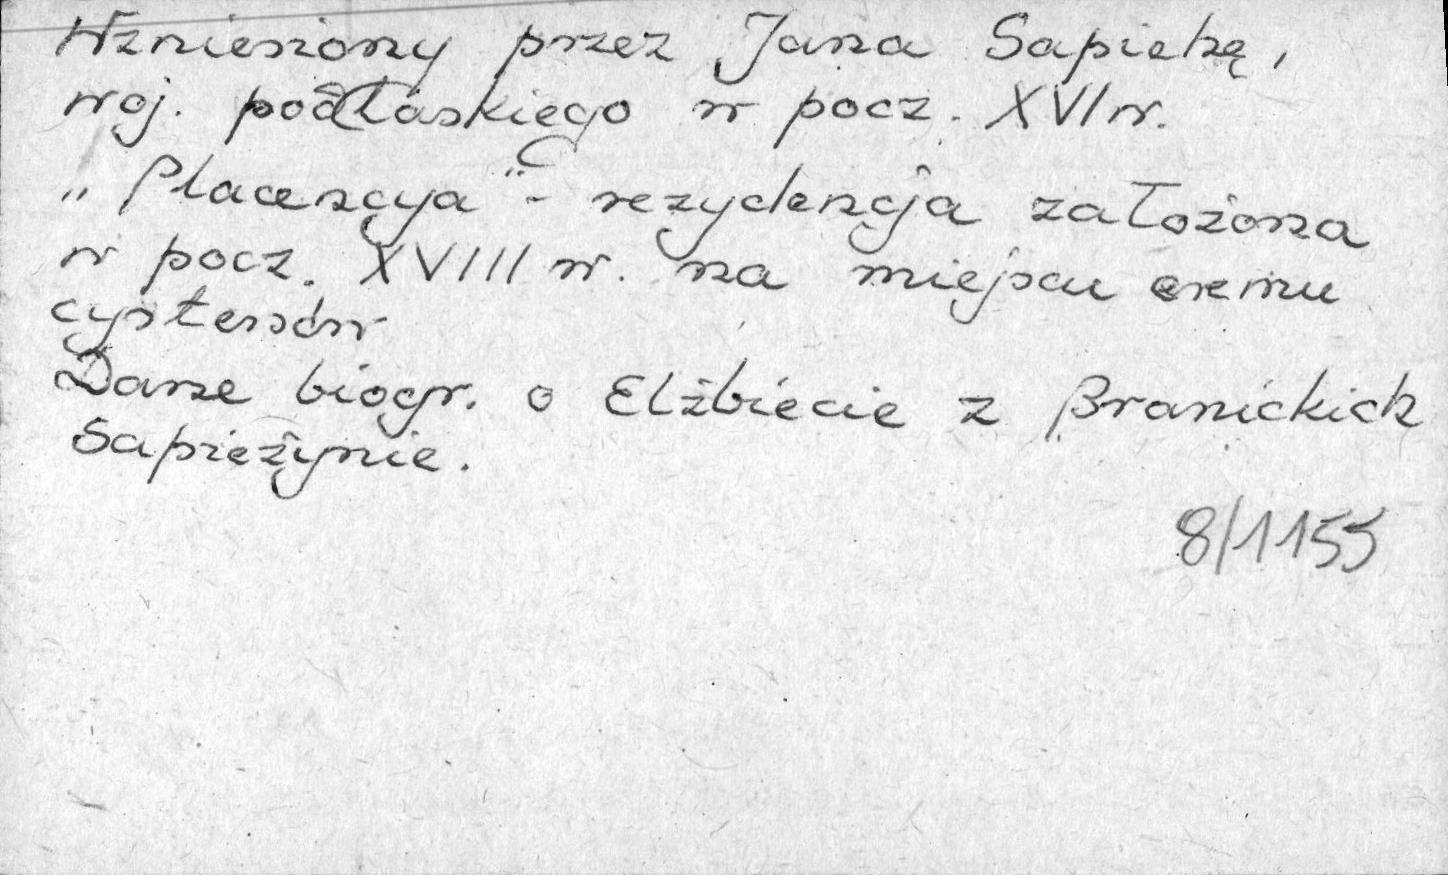 Wzniesiony przez Jana Sapiehę,
woj. podlaskiego w pocz. XVI w.
„Placencya" - rezydencja założona
w pocz. XVIII w. na miejscu eremu
cystersów
Dane biogr. o Elżbiecie z Branickich
Sapieżynie.
8/1155